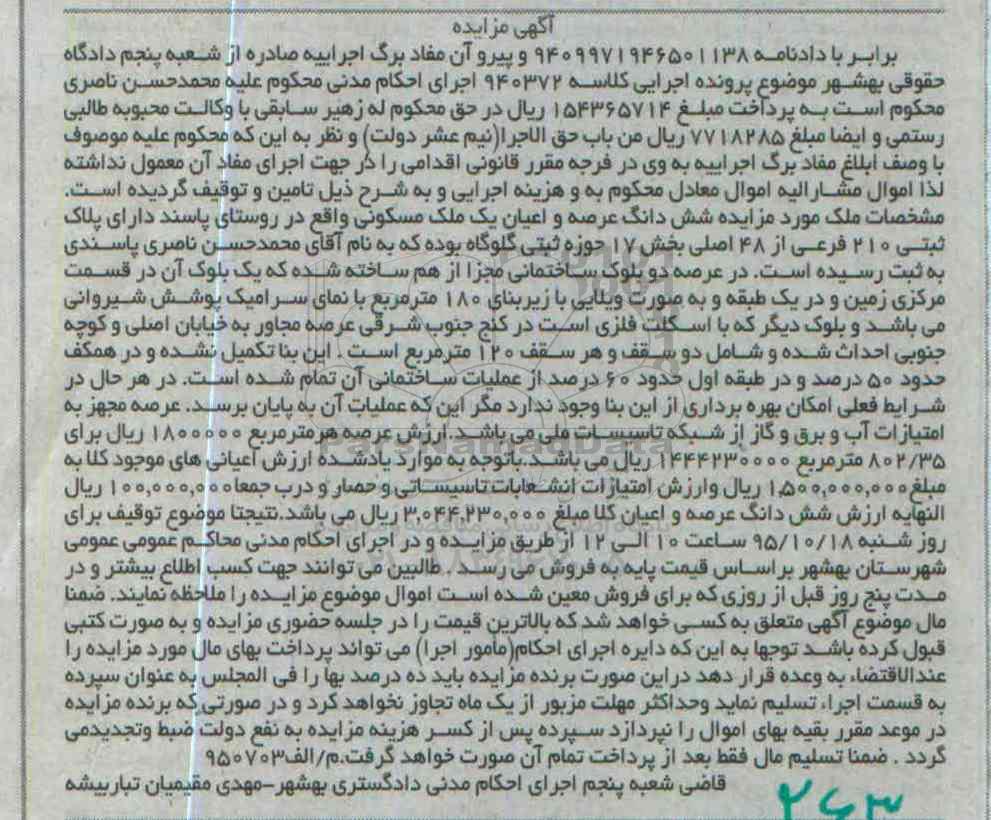 آگهی مزایده
برابر با دادنامه ۹۴۰۹۹۷۱۹۴۶۵۰۱۱۳۸ و پیرو آن مفاد برگ اجراییه صادره از شعبه پنجم دادگاه
حقوقی بهشهر موضوع پرونده اجرایی کلاسه ۹۴۰۳۷۲ اجرای احکام مدنی محکوم علیه محمدحسن ناصری
محکوم است به پرداخت مبلغ ۱۵۴۳۶۵۷۱۴ ریال در حق محکوم له زهیر سابقی با وکالت محبوبه طالبی
رستمی و ایضا مبلغ ۷۷۱۸۲۸۵ ریال من باب حق الاجرا(نیم عشر دولت) و نظر به این که محکوم علیه موصوف
با وصف ابلاغ مفاد برگ اجراییه به وی در فرجه مقرر قانونی اقدامی را در جهت اجرای مفاد آن معمول نداشته
لذا اموال مشارالیه اموال معادل محکوم به و هزینه اجرایی و به شرح ذیل تامین و توقیف گردیده است.
مشخصات ملک مورد مزایده شش دانگ عرصه و اعیان یک ملک مسکونی واقع در روستای پاسند دارای پلاک
ثبتی ۲۱۰ فرعی از ۴۸ اصلی بخش ۱۷ حوزه ثبتی گلوگاه بوده که به نام آقای محمدحسن ناصری پاسندی
به ثبت رسیده است. در عرصه دو بلوک ساختمانی مجزا از هم ساخته شده که یک بلوک آن در قسمت
مرکزی زمین و در یک طبقه و به صورت ویلایی با زیربنای ۱۸۰ مترمربع با نمای سرامیک پوشش شیروانی
می باشد و بلوک دیگر که با اسکلت فلزی است در کنج جنوب شرقی عرصه مجاور به خیابان اصلی و کوچه
جنوبی احداث شده و شامل دو سقف و هر سقف ۱۲۰ مترمربع است . این بنا تکمیل نشده و در همکف
حدود ۵۰ درصد و در طبقه اول حدود ۶۰ درصد از عملیات ساختمانی آن تمام شده است. در هر حال در
شرایط فعلی امکان بهره برداری از این بنا وجود ندارد مگر این که عملیات آن به پایان برسد. عرصه مجهز به
امتیازات آب و برق و گاز از شبکه تاسیسات ملی می باشد. ارزش عرصه هرمترمربع ۱۸۰۰۰۰۰ ریال برای
۸۰۲/۳۵ مترمربع ۱۴۴۴۲۳۰۰۰۰ ریال می باشد.باتوجه به موارد یادشده ارزش اعیانی های موجود کلا به
مبلغ ۱,۵۰۰,۰۰۰,۰۰۰ ریال وارزش امتیازات انشعابات تاسیساتی و حصار و درب جمعا۱۰۰,۰۰۰,۰۰۰ ریال
النهایه ارزش شش دانگ عرصه و اعیان کلا مبلغ ۳,۰۴۴,۲۳۰,۰۰۰ ریال می باشد.نتیجتا موضوع توقیف برای
روز شنبه ۹۵/۱۰/۱۸ ساعت ۱۰ الی ۱۲ از طریق مزایده و در اجرای احکام مدنی محاکم عمومی عمومی
شهرستان بهشهر براساس قیمت پایه به فروش می رسد . طالبین می توانند جهت کسب اطلاع بیشتر و در
مدت پنج روز قبل از روزی که برای فروش معین شده است اموال موضوع مزایده را ملاحظه نمایند. ضمنا
مال موضوع آگهی متعلق به کسی خواهد شد که بالاترین قیمت را در جلسه حضوری مزایده و به صورت کتبی
قبول کرده باشد توجها به این که دایره اجرای احکام(مامور اجرا) می تواند پرداخت بهای مال مورد مزایده را
عندالاقتضاء به وعده قرار دهد دراین صورت برنده مزایده باید ده درصد بها را فی المجلس به عنوان سپرده
به قسمت اجراء تسلیم نماید وحداکثر مهلت مزبور از یک ماه تجاوز نخواهد کرد و در صورتی که برنده مزایده
در موعد مقرر بقیه بهای اموال را نپردازد سپرده پس از کسر هزینه مزایده به نفع دولت ضبط وتجدیدمی
گردد . ضمنا تسلیم مال فقط بعد از پرداخت تمام آن صورت خواهد گرفت.م/الف۹۵۰۷۰۳
قاضی شعبه پنجم اجرای احکام مدنی دادگستری بهشهر-مهدی مقیمیان تباربیشه
۲۶۳
ParsNamadData